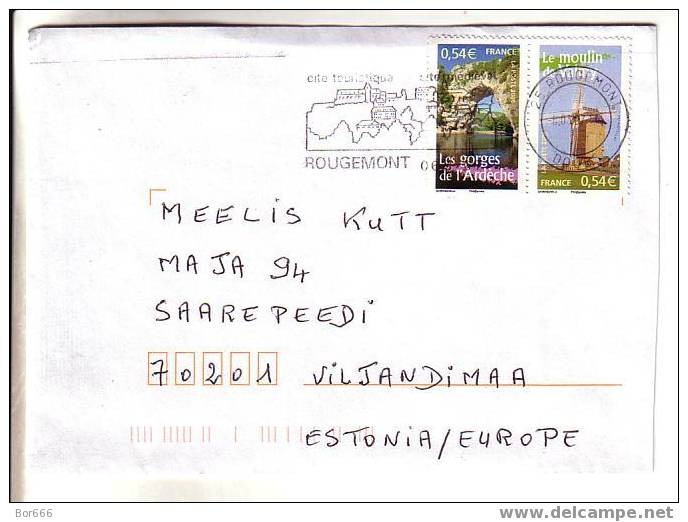 cité touristique cité médiéval
ROUGEMONT 06
0,54€ FRANCE
Les gorges
de l'Ardèche
Le moulin
FRANCE 0,54€
25 ROUGEMONT
DOUBS
MEELIS KUTT
MAJA 94
SAAREPEEDI
70201 VILJANDIMAA
ESTONIA/EUROPE
Bor666
www.delcampe.net